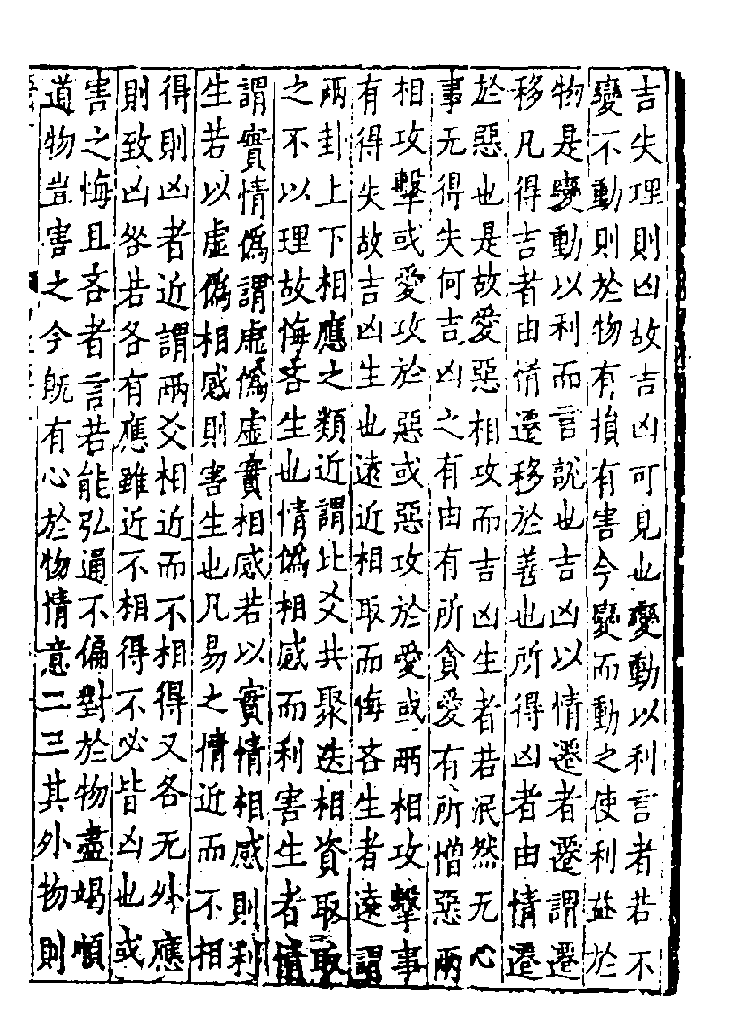 吉失理則凶故吉凶可見也變動以利言者若不
變不動則於物有損有害今變而動之使利益於
物是變動以利而言說也吉凶以情遷者遷謂遷
移凡得吉者由情遷移於善也所得凶者由情遷
於惡也是故愛惡相攻而吉凶生者若泯然无心
事无得失何吉凶之有由有所貪愛有所憎惡兩
相攻擊或愛攻於惡或惡攻於愛或兩相攻擊事
有得失故吉凶生也遠近相取而悔吝生者遠謂
兩卦上下相應之類近謂比爻共聚迭相資取取
之不以理故悔吝生也情僞相感而利害生者情
謂實情僞謂虛僞虛實相感若以實情相感則利
生若以虛僞相感則害生也凡易之情近而不相
得則凶者近謂兩爻相近而不相得又各无外應
則致凶咎若各有應雖近不相得不必皆凶也或
害之悔且吝者言若能弘通不偏對於物盡竭順
道物豈害之今旣有心於物情意二三其外物則